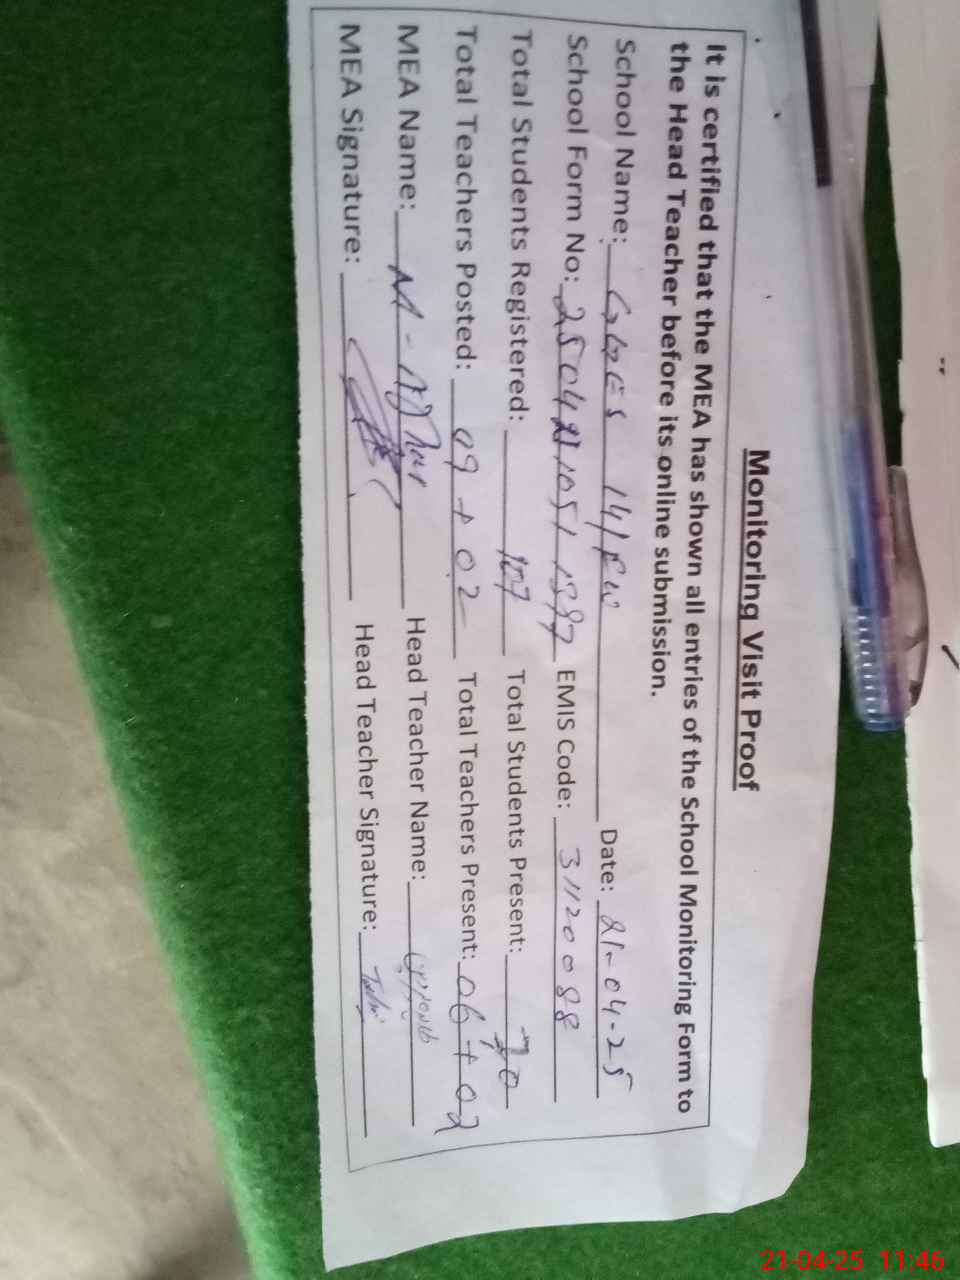 Monitoring Visit Proof
It is certified that the MEA has shown all entries of the School Monitoring Form to
the Head Teacher before its online submission.
School Name: GGES 141/EW Date: 21-04-25
School Form No: EMIS Code: 31120088
Total Students Registered: 107 Total Students Present: 70
Total Teachers Posted: 09 + 02 Total Teachers Present: 06 + 02
MEA Name: Head Teacher Name:
MEA Signature: Head Teacher Signature:
21-04-25 11:46